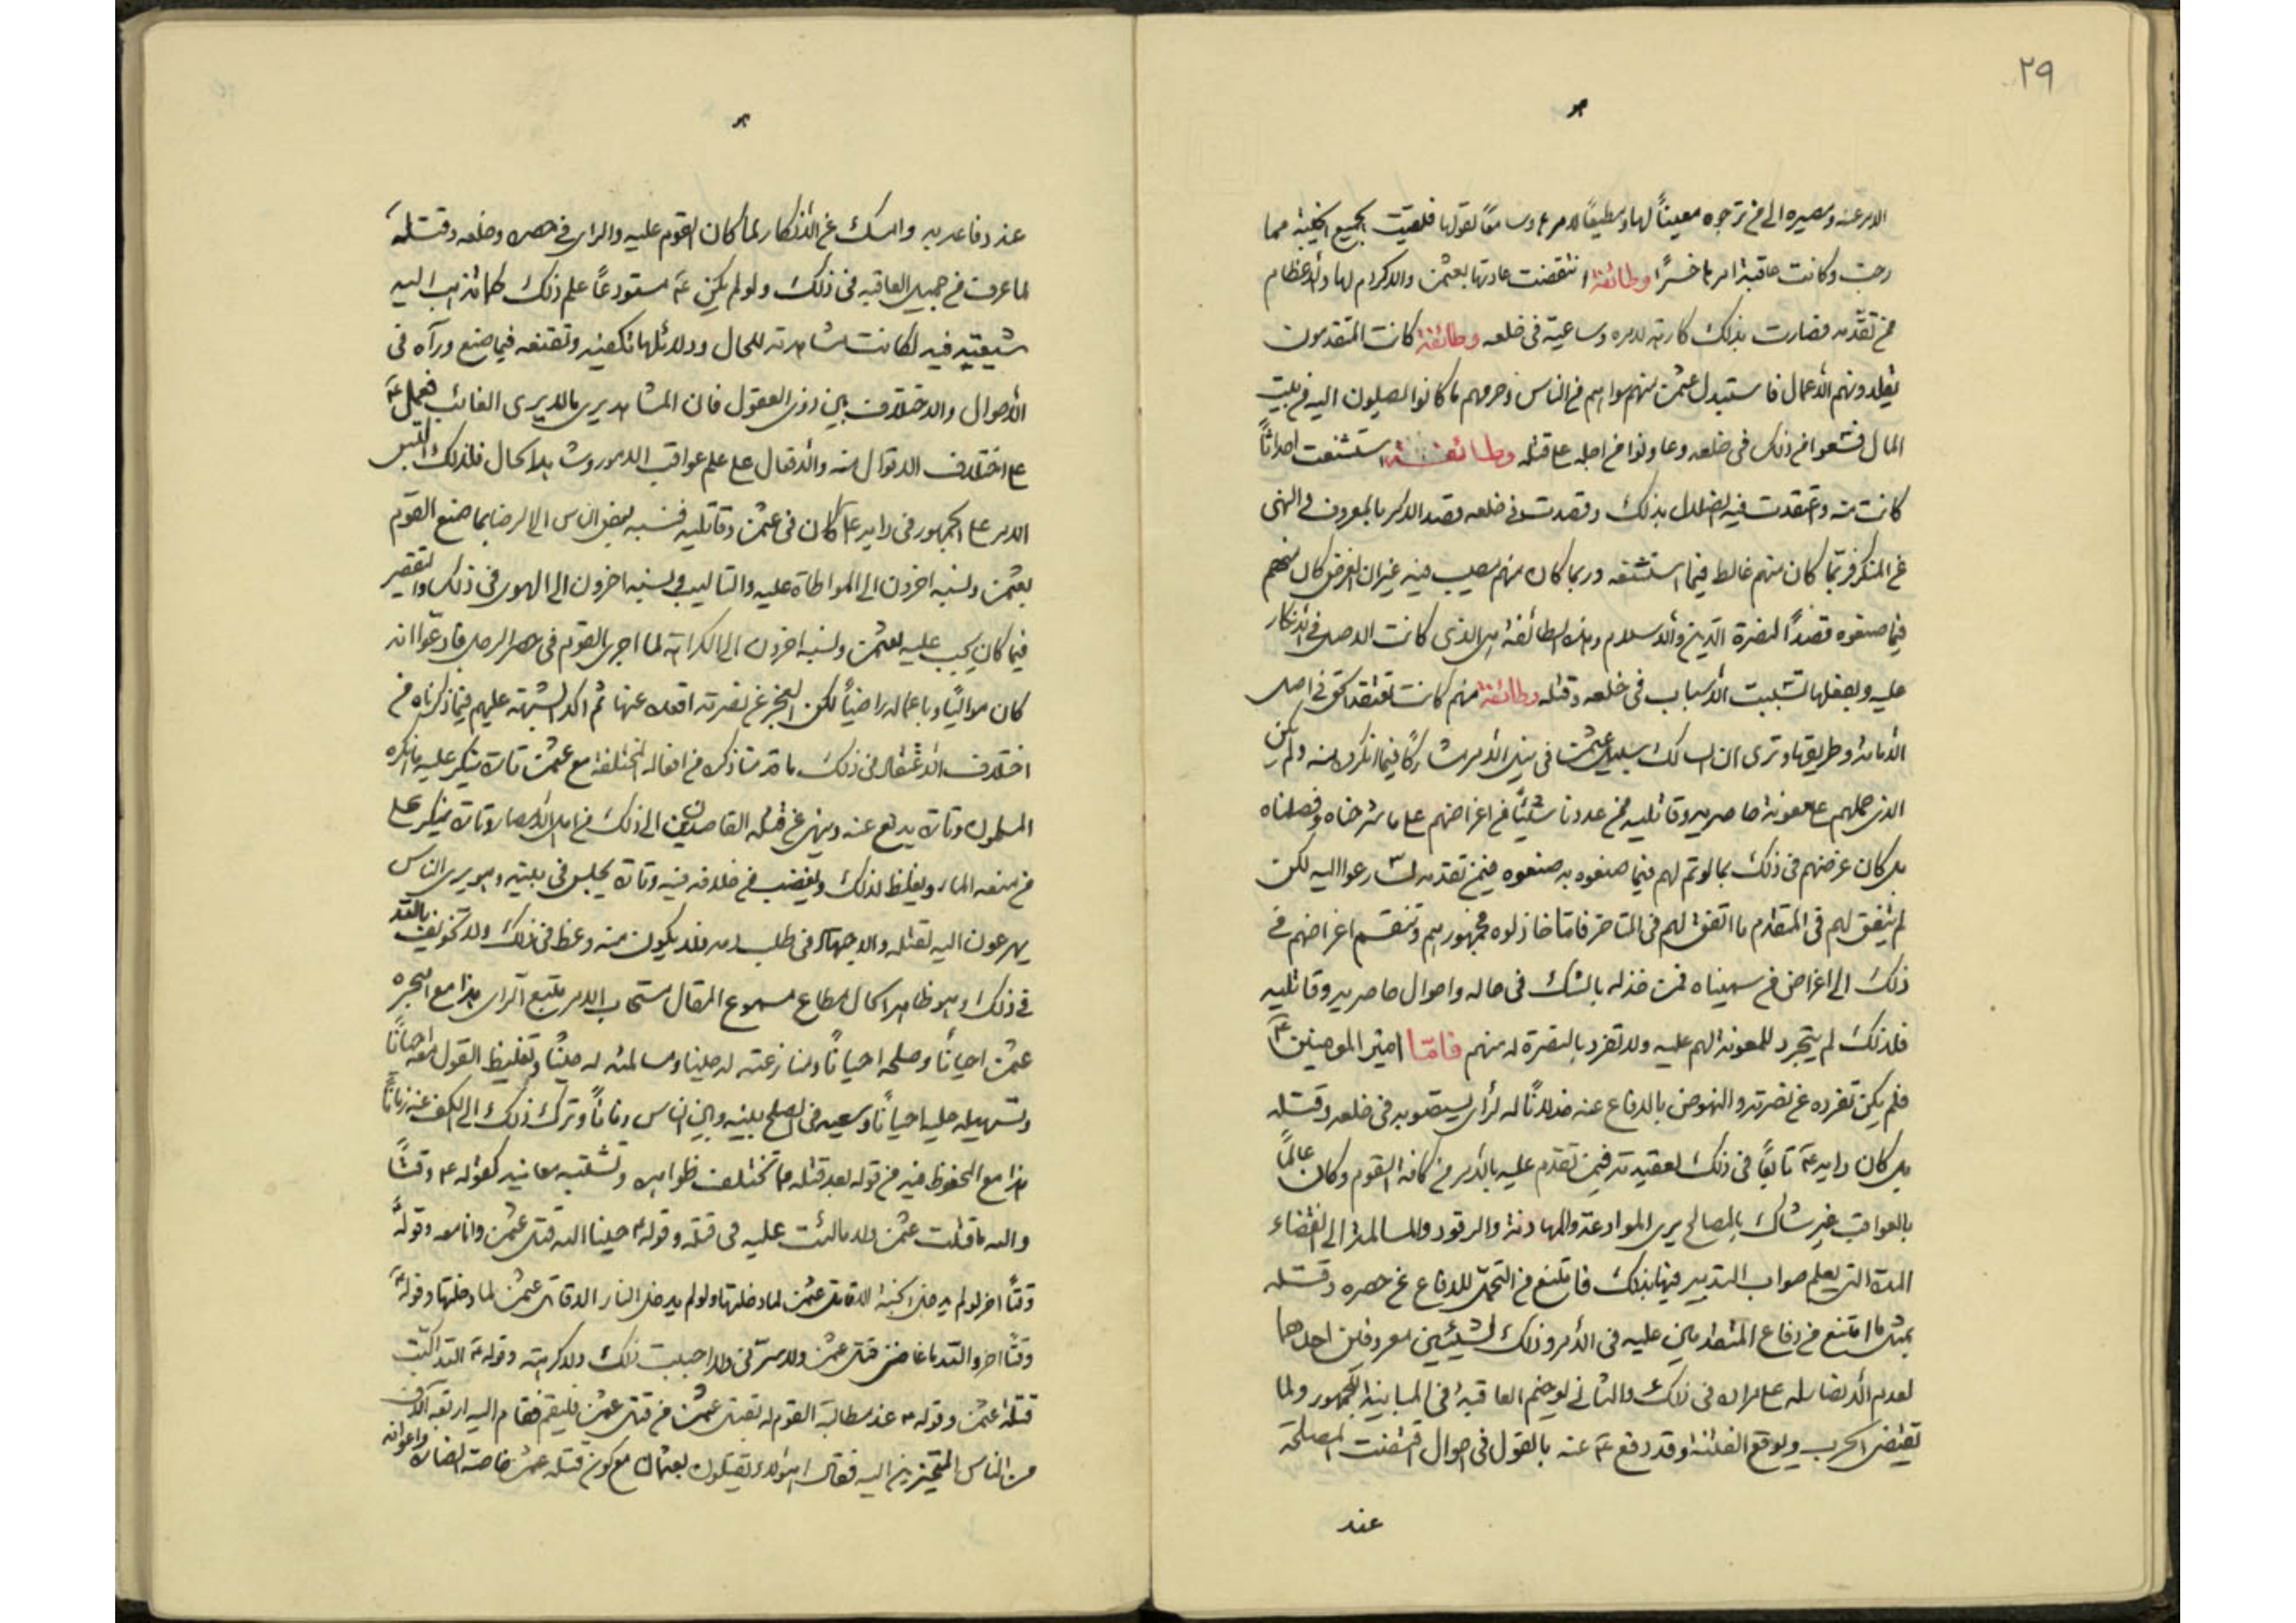 ٢٩
الامر عنه ومصيره الى من ترجوه معيناً لها ومطيعاً لامرها وسامعاً لقولها فلقيت الجميع الخيبة مما
رجت وكانت عاقبة امرها خسراً وطائفة انتقضت عادتها بعثمن والاكرام لها والاعظام
من تقدّمه فصارت بذلك كارهة لامره وساعية فى خلعه وطائفة كانت المتقدمون
يقلدونهم الاعمال فاستبدل عثمن منهم سواهم من الناس وحرمهم ما كانوا يصلون اليه من بيت
المال فسعوا من ذلك فى خلعه وعاونوا من اجله على قتله وطائفة استشنعت احداثاً
كانت منه واعتقدت فيه الضلال بذلك وقصدت فى خلعه قصد الامر بالمعروف والنهى
عن المنكر فربّما كان منهم غالط فيما استشنعه وربما كان منهم مصيب فيه غير ان الغرض كان منهم
فيما صنعوه قصداً لنصرة الدّين والاسلام وهذه الطائفة هى الذى كانت الاصل فى الانكار
عليه وبفعلها تسببت الاسباب فى خلعه وقتله وطائفة منهم كانت تعتقد الحق فى اصل
الامامة وطريقها وترى ان السالك سبيل عثمن فى نيل الامر مشاركاً فيما انكره منه ولم يكن
الذى حملهم على معونة حاصريه وقاتليه من عددنا شيئاً من اغراضهم على ما شرحناه وفصلناه
بل كان غرضهم فى ذلك بما لو تم لهم فيما صنعوه به صنعوه فيمن تقدمه لسارعوا اليه لكن
لم يتفق لهم فى المتقدم ما اتفق لهم فى المتأخر فامّا خاذلوه فجمهورهم وتنقسم اغراضهم فى
ذلك الى اغراض من سميناه فمن خذله بالشك فى حاله واحوال حاصريه وقاتليه
فلذلك لم يتجرد للمعونة لهم عليه ولا تفرد بالنصرة له منهم فامّا امير المومنين ع
فلم يكن تفرده عن نصرته والنهوض بالدفاع عنه خذلاناً له لرأى يستصوبه فى خلعه وقتله
بل كان رايه ع تابعاً فى ذلك لعقيدته فيمن تقدم عليه بالامر من كافة القوم وكان عالماً
بالعواقب غير شاك بالمصالح يرى الموادعة والمهادنة والرقود والمسالمة الى انقضاء
المدة التى يعلم صواب التدبير فيها بذلك فامتنع من التحمل للدفاع عن حصره وقتله
بمثل ما امتنع من دفاع المتقدمين عليه فى الامر وذلك لشيئين معروفين احدهما
لعدم الانصار له على مراده فى ذلك والثانى لوخيم العاقبة فى المباينة للجمهور ولما
تقتضى الحرب ويوقع الفتنة وقد دفع ع عنه بالقول فى احوال اقتضت المصلحة
عند
عند دفاعه به وامسك عن الانكار لما كان القوم عليه والراى فى حصره وخلعه وقتله
لما عرف من جميل العاقبة فى ذلك ولو لم يكن ع مستودعاً علم ذلك كما تذهب اليه
شيعته فيه لكانت مشاهدته للحال ودلائلها تكفيه وتقنعه فيما صنع ورآه فى
الاحوال والاختلاف بين ذوى العقول فان المشاهد يرى ما لا يرى الغائب فعمل ع
على اختلاف الاقوال منه والافعال على علم عواقب الامور وشاهد الحال فلذلك التبس
الامر على الجمهور فى رايه ع كان فى عثمن وقاتليه فنسبه بعض الناس الى الرضا بما صنع القوم
بعثمن ونسبه اخرون الى المواطاة عليه والتاليب ونسبه اخرون الى الهوى فى ذلك والتقصير
فيما كان يجب عليه لعثمن ونسبه اخرون الى الكراهة لما اجرى القوم فى حصر الرجل فادعوا انه
كان موالياً وباعماله راضياً لكن العجز عن نصرته اقعده عنها ثم اكد الشبهة عليهم فيما ذكرناه من
اختلاف الاعتقاد فى ذلك ما قدمنا ذكره من افعاله المختلفة مع عثمن تارة ينكر عليه ما انكره
المسلمون وتارة يدفع عنه وينهى عن قتله القاصدين الى ذلك من اهل الامصار وتارة ينكر على
من منعه الماء ويغلظ لذلك ويغضب من خلافه فيه وتارة يجلس فى بيته وهو يرى الناس
يهرعون اليه لقتله والاجتهاد فى طلب دمه فلا يكون منه وعظ فى ذلك ولا تخويف بالله
فى ذلك وهو ظاهر الحال مطاع مسموع المقال مستجاب الامر متبع الراى هذا مع هجره
عثمن احياناً وصلحه احياناً ومنازعته له حيناً ومسالمته له حيناً وتغليظ القول معه احياناً
وتسهيله عليه احياناً وسعيه فى الصلح بينه وبين الناس زماناً وترك ذلك الى الكف عنه زماناً
هذا مع المحفوظ فيه من قوله بعد قتله مما تختلف ظواهره وتشتبه معانيه كقوله ع وقتاً
والله ما قتلت عثمن ولا مالئت عليه فى قتله وقوله ع حيناً الله قتل عثمن وانا معه وقوله ع
وقتاً اخر لو لم يدخل الجنة الا قاتل عثمن لما دخلتها ولو لم يدخل النار الا قاتل عثمن لما دخلتها وقوله ع
وقتاً اخر والله ما غاضنى قتل عثمن ولا سرّنى ولا احببت ذلك ولا كرهته وقوله ع الله اكبّت
قتلة عثمن وقوله ع عند مطالبة القوم له بقتل عثمن من قتل عثمن فليقم فقام اليه اربعة آلاف
من الناس المتحيزين اليه فقال اهؤلاء تقتلون بعثمان مع كون قتلة عثمن خاصة انصاره واعوانه